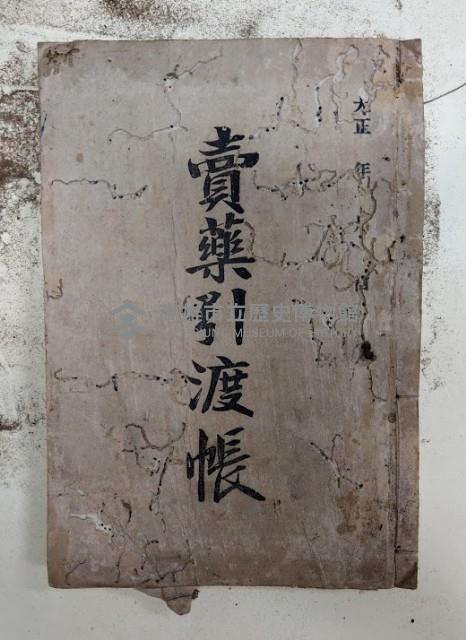 大正 年
賣藥引渡帳
市立歷史博物館
MUSEUM OF